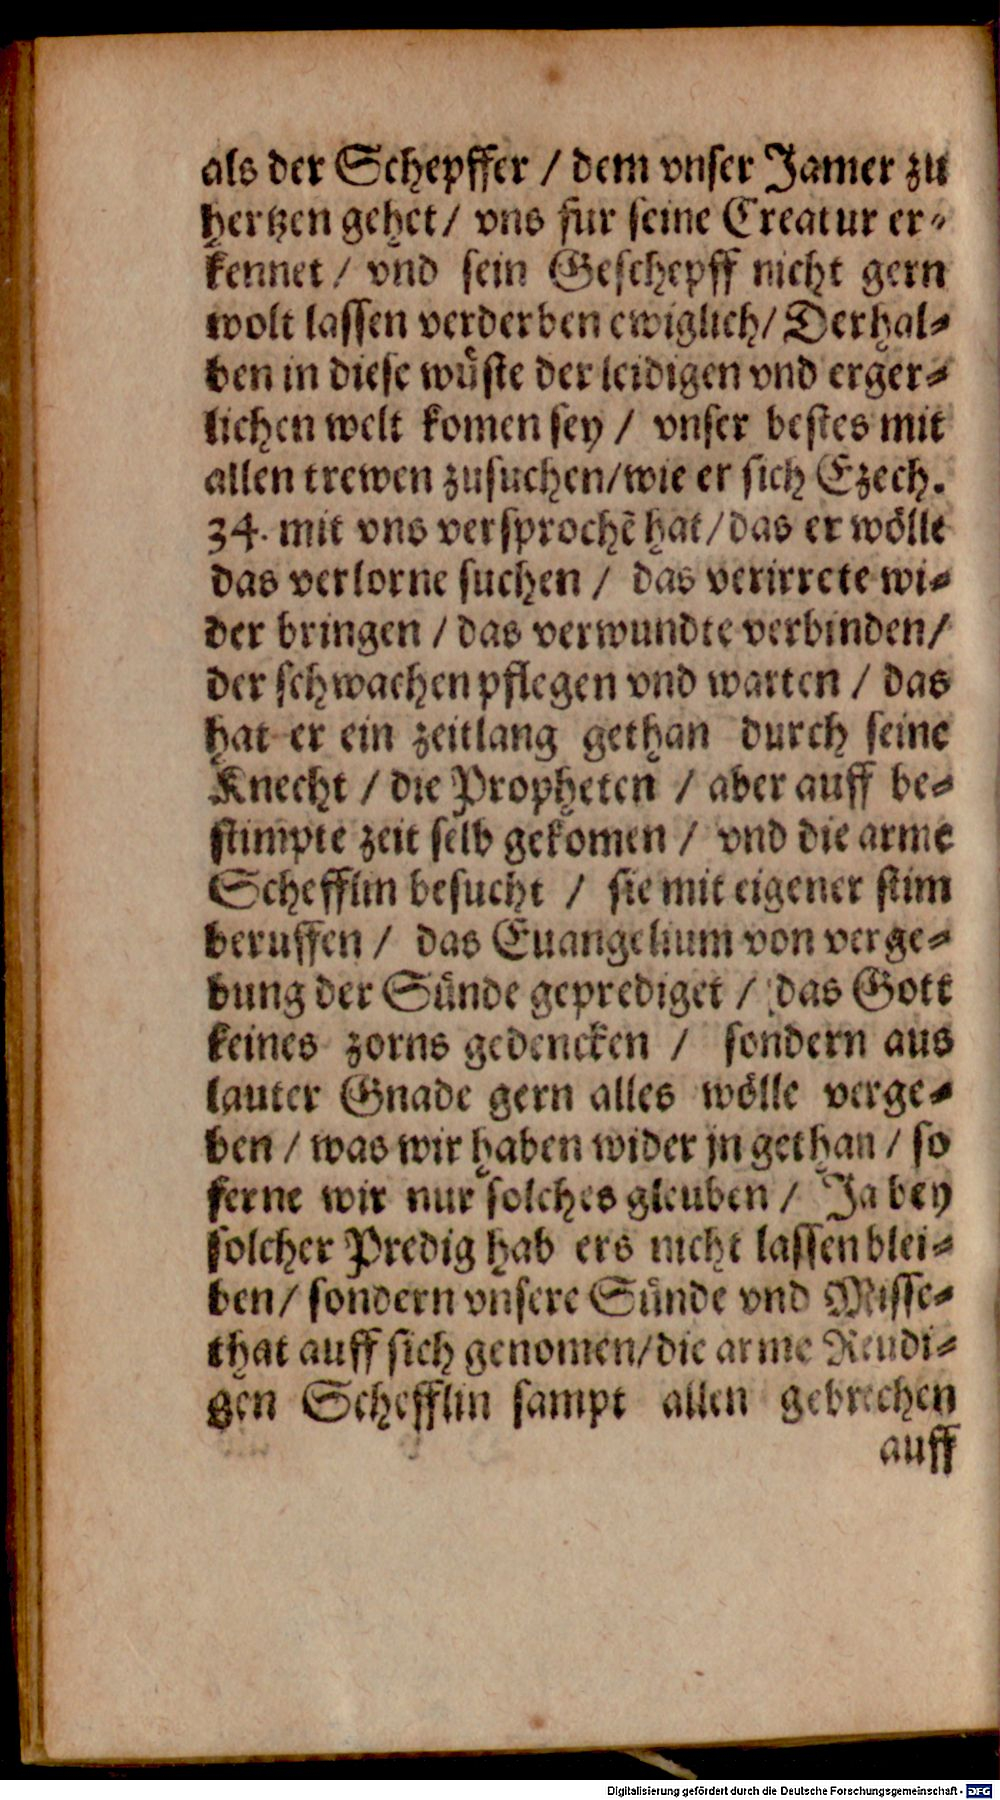 als der Schepffer / dem vnser Jamer zu
hertzen gehet / vns fur seine Creatur er-
kennet / vnd sein Geschepff nicht gern
wolt lassen verderben ewiglich / Derhal-
ben in diese wüste der leidigen vnd erger-
lichen welt komen sey / vnser bestes mit
allen trewen zusuchen / wie er sich Ezech.
34. mit vns versprochẽ hat / das er wölle
das verlorne suchen / das verirrete wi-
der bringen / das verwundte verbinden /
der schwachen pflegen vnd warten / das
hat er ein zeitlang gethan durch seine
Knecht / die Propheten / aber auff be-
stimpte zeit selb gekomen / vnd die arme
Schefflin besucht / sie mit eigener stim
beruffen / das Euangelium von verge-
bung der Sünde geprediget / das Gott
keines zorns gedencken / sondern aus
lauter Gnade gern alles wölle verge-
ben / was wir haben wider jn gethan / so
ferne wir nur solches gleuben / Ja bey
solcher Predig hab ers nicht lassen blei-
ben / sondern vnsere Sünde vnd Misse-
that auff sich genomen / die arme Reudi-
gen Schefflin sampt allen gebrechen
auff
Digitalisierung gefördert durch die Deutsche Forschungsgemeinschaft - DFG